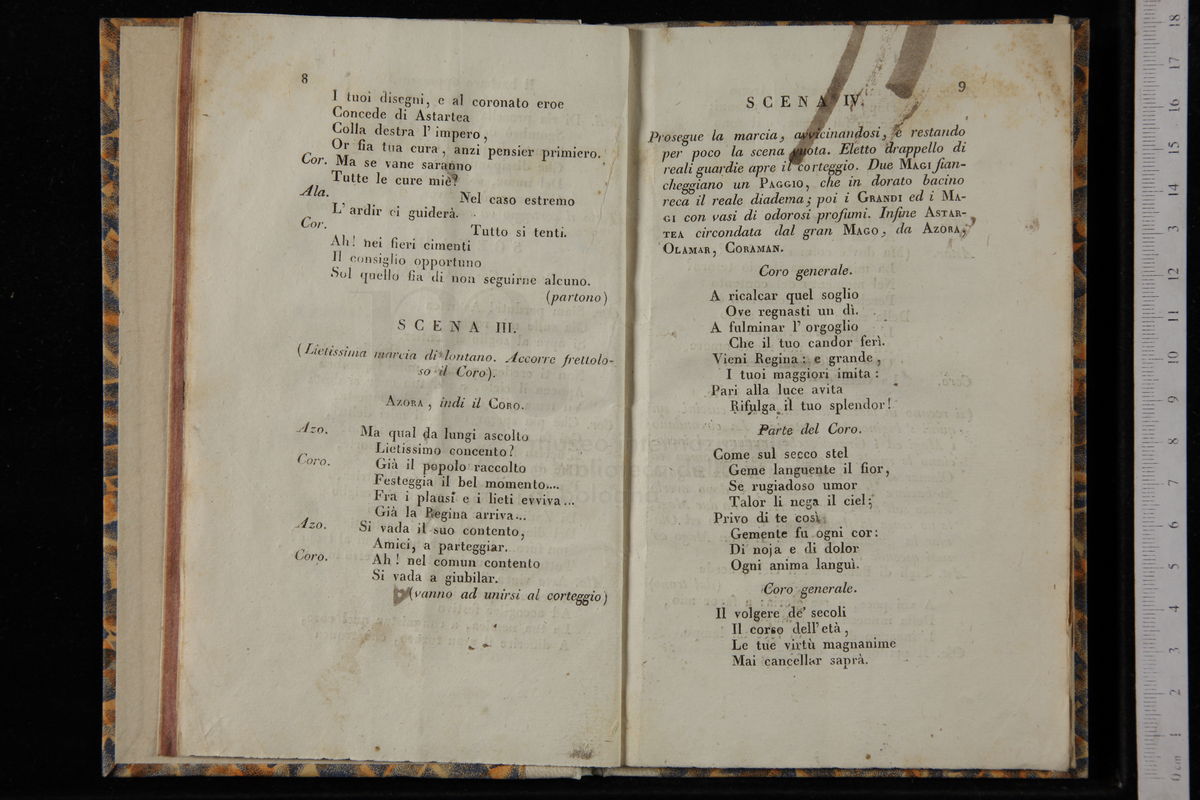 8
I tuoi disegni, e al coronato eroe
Concede di Astartea
Colla destra l' impero,
Or fia tua cura, anzi pensier primiero.
Cor. Ma se vane saranno
Tutte le cure mie?
Ala. Nel caso estremo
L' ardir ci guiderà.
Cor. Tutto si tenti.
Ah! nei fieri cimenti
Il consiglio opportuno
Sol quello fia di non seguirne alcuno.
(partono)
SCENA III.
(Lietissima marcia di lontano. Accorre frettolo-
so il Coro).
AZORA, indi il CORO.
Azo. Ma qual da lungi ascolto
Lietissimo concento?
Coro. Già il popolo raccolto
Festeggia il bel momento....
Fra i plausi e i lieti evviva...
Già la Regina arriva...
Azo. Si vada il suo contento,
Amici, a parteggiar.
Coro. Ah! nel comun contento
Si vada a giubilar.
(vanno ad unirsi al corteggio)
9
SCENA IV.
Prosegue la marcia, avvicinandosi, e restando
per poco la scena vuota. Eletto drappello di
reali guardie apre il corteggio. Due MAGI fian-
cheggiano un PAGGIO, che in dorato bacino
reca il reale diadema; poi i GRANDI ed i MA-
GI con vasi di odorosi profumi. Infine ASTAR-
TEA circondata dal gran MAGO, da AZORA,
OLAMAR, CORAMAN.
Coro generale.
A ricalcar quel soglio
Ove regnasti un dì.
A fulminar l' orgoglio
Che il tuo candor ferì.
Vieni Regina: e grande,
I tuoi maggiori imita:
Pari alla luce avita
Rifulga il tuo splendor!
Parte del Coro.
Come sul secco stel
Geme languente il fior,
Se rugiadoso umor
Talor li nega il ciel;
Privo di te così
Gemente fu ogni cor:
Di noja e di dolor
Ogni anima languì.
Coro generale.
Il volgere de' secoli
Il corso dell' età,
Le tue virtù magnanime
Mai cancellar saprà.
0 cm 1 2 3 4 5 6 7 8 9 10 11 12 13 14 15 16 17 18